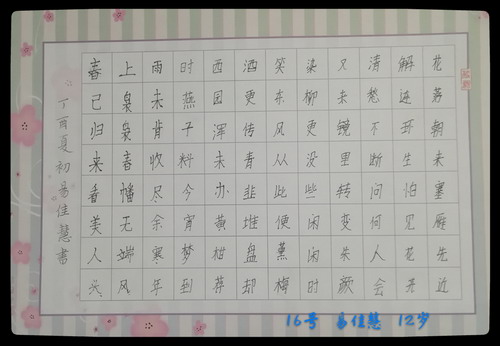 春已归来看美人头
上袅袅春幡无端风
雨未肯收尽余寒年
时燕子料今宵梦到
西园浑未办黄柑荐
酒更传青韭堆盘却
笑东风从此便薰梅
染柳更没些闲闲时
又来镜里转变朱颜
清愁不断问何人会
解连环生怕见花开
花落朝来塞雁先近
丁酉夏初易佳慧書
16号 易佳慧 12岁